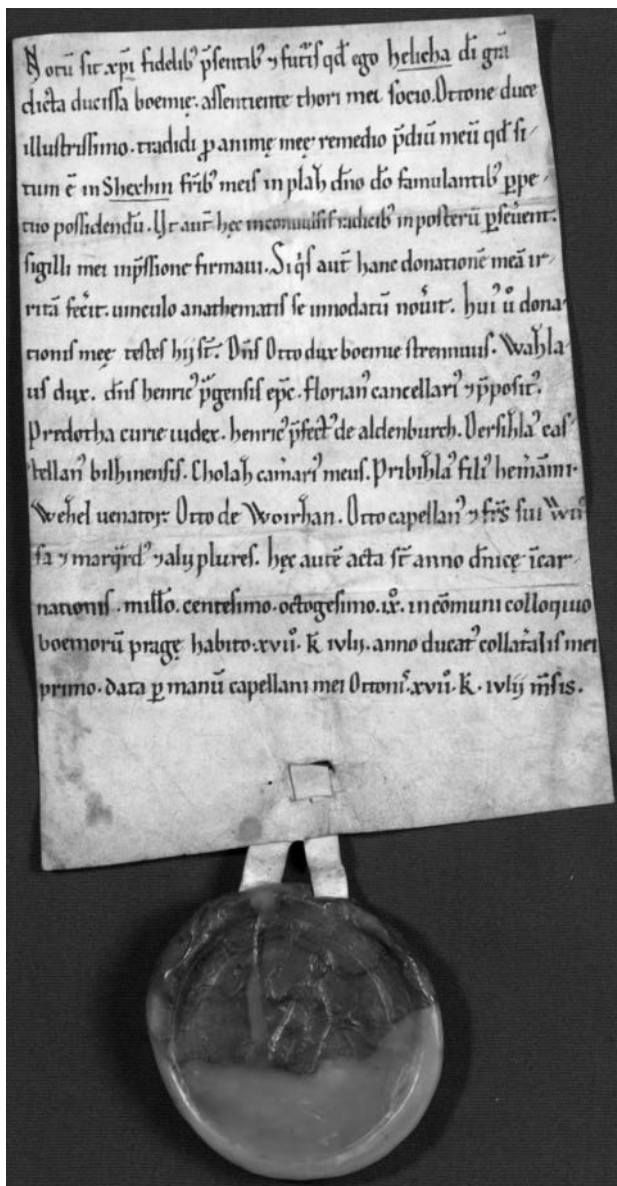 Notū sit xp̄i fidelib' p̄sentib' ⁊ futuris qd̄ ego helicha dī grā
dicta ducissa boemię. assentiente thori mei socio. Ottone duce
illustrissimo. tradidi p̲ animę meę remedio p̄diū meū qd̄ si-
tum ē in Shexhin frīb' meis in plah̄ dn̄o dō famulantib' p̲pe-
tuo possidendū. Ut aut̄ hęc inconvulsis radicib' in posterū p̲sevent.
sigilli mei inp̄ssione firmavi. Si q's aut̄ hanc donationē meā ir-
ritā fec̄it. vinculo anathematis se innodatū nov̄it. hui' ů dona-
tionis meę testes hij st̄. Dn̄s Otto dux boemie strennuus. Wah̄la-
us dux. dn̄s henric' p̄gensis ep̄c. florian' cancellari' ⁊ p̄posit'.
Prědotha curie iudex. henric' p̄fect' de aldenburch. Dersih̄la' cas-
tellan' bilhinensis. Cholah̄ cam̄ari' meus. Pribih̄la' fili' hem̄āni.
Weh̄el venator. Otto de Woirhan. Otto capellan' ⁊ fr̄s sui
⁊ marq̄rd' ⁊ alij plures. hęc autē acta st̄ anno dn̄icę īcar-
nationis. mill̊o. centesimo. octogesimo. ıx̊. in cōmuni colloquio
boemorū pragę habito. xvii̊. k̄. ivlij. anno ducat' collat̄alis mei
primo. data p̲ manū capellani mei Ottonis. xvii̊. k̄. ivlij m̄sis.